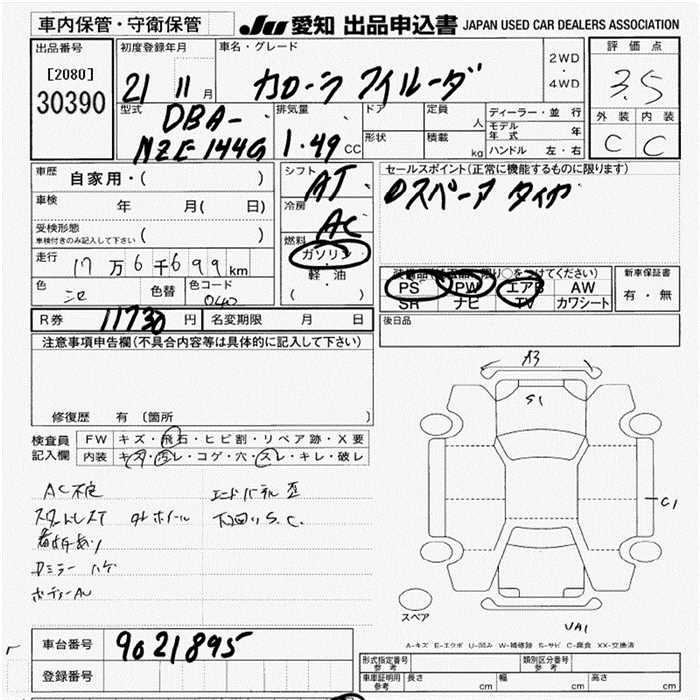 車内保管・守衛保管
JU 愛知 出品申込書 JAPAN USED CAR DEALERS ASSOCIATION
出品番号
[2080]
30390
初度登録年月
21 11 月
車名・グレード
カローラ フィルーダ
2WD
・
4WD
評価点
3.5
外装 内装
C C
型式
DBA-
NZE144G
排気量
1.49 CC
ドア
形状
定員 人
積載 kg
ディーラー・並行
モデル年式 年
ハンドル 左・右
車歴 自家用・( )
車検 年 月( 日)
受検形態
車検付きのみ記入して下さい ( )
走行 17万6千699km
色 色替 色コード
040
シフト
AT
冷房
AC
燃料
ガソリン
・
軽油
( )
セールスポイント(正常に機能するものに限ります)
スペーア タイヤ
PS PW エアB AW
SR ナビ TV カワシート
新車保証書
有・無
R券 11730 円 名変期限 月 日
後日品
注意事項申告欄(不具合内容等は具体的に記入して下さい)
修復歴 有 〔箇所
検査員
記入欄
FW キズ・飛石・ヒビ割・リペア跡・X要
内装 キズ・汚レ・コゲ・穴・スレ・キレ・破レ
AC不良
ボディーAU
A3
S1
C1
UA1
スペア
A-キズ E-エクボ U-凹み W-補修跡 S-サビ C-腐食 XX-交換済
車台番号 9021895
登録番号
形式指定番号
参考
類別区分番号
参考
車庫証明用
参考
長さ cm 幅 cm 高さ cm